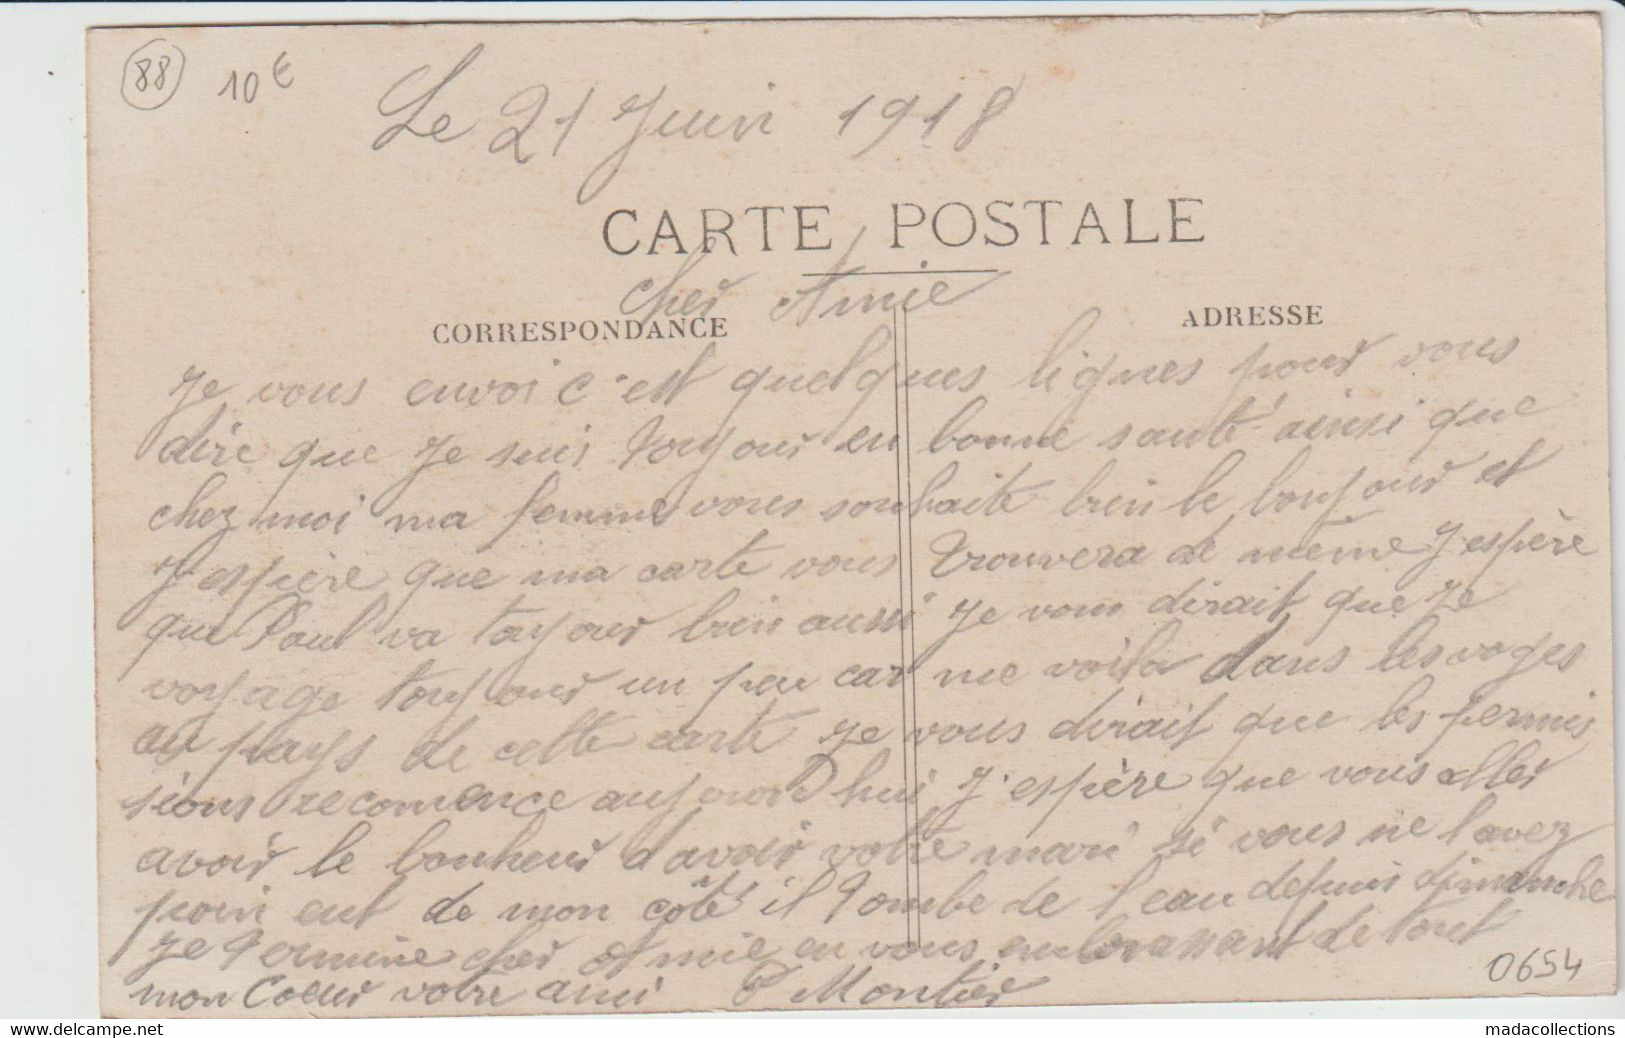 88 10€
Le 21 Juin 1918
CARTE POSTALE
cher Amie
CORRESPONDANCE
ADRESSE
Je vous envoi c'est quelques lignes pour vous
dire que Je suis toujour en bonne santé ainsi que
chez moi ma femme vous souhaite bien le bonjour et
J'espère que ma carte vous trouvera de même J'espère
que Paul va toujour bien aussi Je vous dirait que Je
voyage toujour un peu car me voila dans les voges
au pays de cette carte Je vous dirait que les permis
sions recomence aujourd hui J'espère que vous aller
avoir le bonheur d'avoir votre mari si vous ne l'avez
poin eut de mon côté il tombe de l'eau depuis dimanche
Je termine cher Amie en vous embrassant de tout
mon Coeur votre ami P Montier
0654
www.delcampe.net
Le site : marché des collectionneurs
madacollections